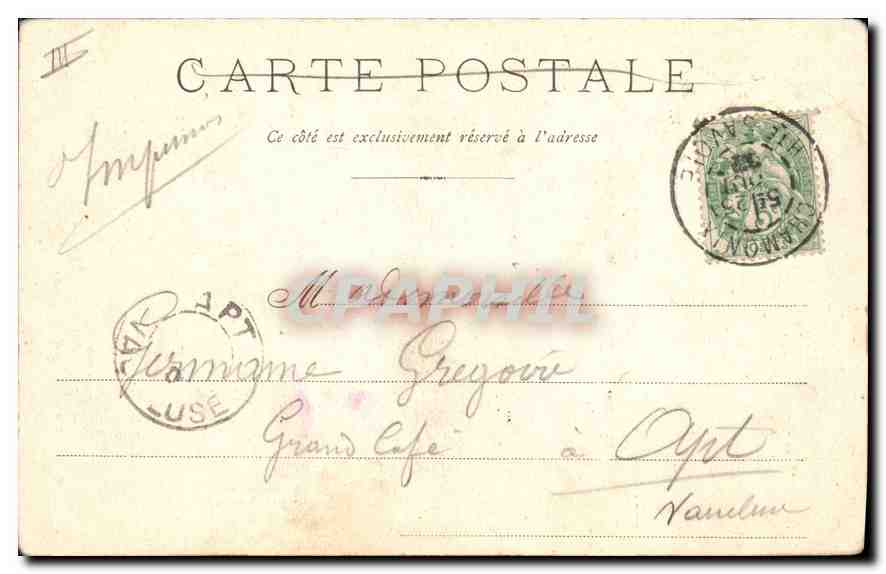 III
CARTE POSTALE
Imprimés
Ce côté est exclusivement réservé à l'adresse
CHAMONIX
HTE SAVOIE
5E 25
APT
VAUCLUSE
Mademoiselle
CPAPHIL
Germaine Grégoire
Grand Café à Apt
Vaucluse